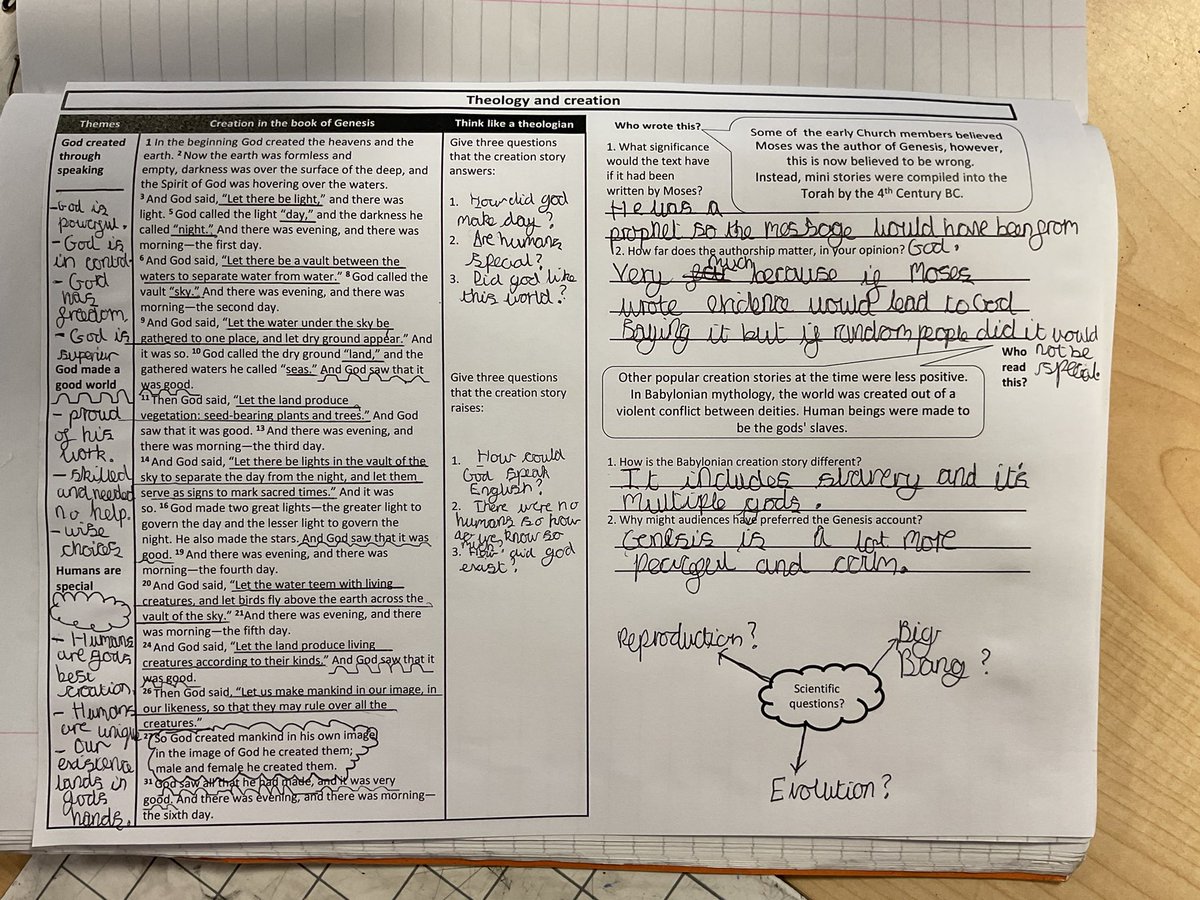 Theology and creation
Themes
God created
through
speaking
-God is
powerful.
- God is
in control
- God
has
freedom
- God is
superior
God made a
good world
- proud
of his
work.
- skilled
and needed
no help.
- wise
choices
Humans are
special
- Humans
are gods
best
creation.
- Humans
are unique
- Our
existence
lands in
gods
hands.
Creation in the book of Genesis
1 In the beginning God created the heavens and the
earth. 2 Now the earth was formless and
empty, darkness was over the surface of the deep, and
the Spirit of God was hovering over the waters.
3 And God said, "Let there be light," and there was
light. 5 God called the light "day," and the darkness he
called "night." And there was evening, and there was
morning—the first day.
6 And God said, "Let there be a vault between the
waters to separate water from water." 8 God called the
vault "sky." And there was evening, and there was
morning—the second day.
9 And God said, "Let the water under the sky be
gathered to one place, and let dry ground appear." And
it was so. 10 God called the dry ground "land," and the
gathered waters he called "seas." And God saw that it
was good.
11 Then God said, "Let the land produce
vegetation: seed-bearing plants and trees." And God
saw that it was good. 13 And there was evening, and
there was morning—the third day.
14 And God said, "Let there be lights in the vault of the
sky to separate the day from the night, and let them
serve as signs to mark sacred times." And it was
so. 16 God made two great lights—the greater light to
govern the day and the lesser light to govern the
night. He also made the stars. And God saw that it was
good. 19 And there was evening, and there was
morning—the fourth day.
20 And God said, "Let the water teem with living
creatures, and let birds fly above the earth across the
vault of the sky." 21And there was evening, and there
was morning—the fifth day.
24 And God said, "Let the land produce living
creatures according to their kinds." And God saw that it
was good.
26 Then God said, "Let us make mankind in our image, in
our likeness, so that they may rule over all the
creatures."
27 So God created mankind in his own image,
in the image of God he created them;
male and female he created them.
31 God saw all that he had made, and it was very
good. And there was evening, and there was morning—
the sixth day.
Think like a theologian
Give three questions
that the creation story
answers:
1. How did god
make day?
2. Are humans
special?
3. Did god like
this world?
Give three questions
that the creation story
raises:
1. How could
God speak
English?
2. There were no
humans so how
do we know so
much?
3. How did god
exist?
Who wrote this?
Some of the early Church members believed
Moses was the author of Genesis, however,
this is now believed to be wrong.
Instead, mini stories were compiled into the
Torah by the 4th Century BC.
1. What significance
would the text have
if it had been
written by Moses?
He was a
prophet so the message would have been from
God.
2. How far does the authorship matter, in your opinion?
Very much because if Moses
wrote evidence would lead to God
saying it but if random people did it would
not be
special.
Who
read
this?
Other popular creation stories at the time were less positive.
In Babylonian mythology, the world was created out of a
violent conflict between deities. Human beings were made to
be the gods' slaves.
1. How is the Babylonian creation story different?
It includes slavery and it's
multiple gods.
2. Why might audiences have preferred the Genesis account?
Genesis is a lot more
peaceful and calm.
Reproduction?
Big
Bang?
Scientific
questions?
Evolution?